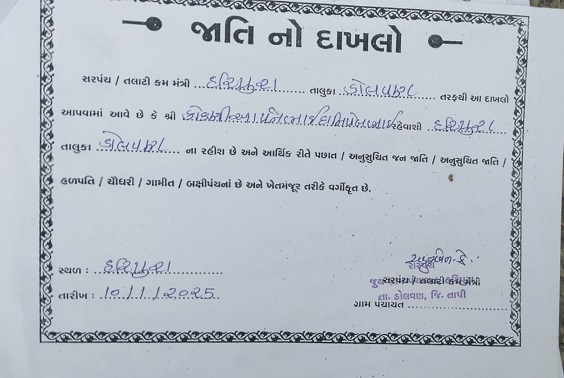 જાતિ નો દાખલો
સરપંચ / તલાટી કમ મંત્રી હરિપુરા તાલુકા ડોલવણ તરફથી આ દાખલો
આપવામાં આવે છે કે શ્રી રહેવાશી હરિપુરા
તાલુકા ડોલવણ ના રહીશ છે અને આર્થિક રીતે પછાત / અનુસુચિત જન જાતિ / અનુસુચિત જાતિ /
હળપતિ / ચૌધરી / ગામીત / બક્ષીપંચનાં છે અને ખેતમંજૂર તરીકે વર્ગીકૃત છે.
સ્થળ : હરિપુરા
સરપંચ
સરપંચ / તલાટી કમ મંત્રી
તારીખ : 10/1/2025
તા. ડોલવણ, જિ. તાપી
ગ્રામ પંચાયત